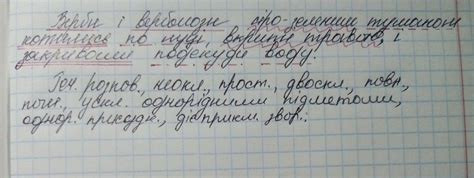 Верби і верболози сіро-зеленим туманом
котились по луці, вкритій травою, і
закривали подекуди воду.
Реч. розпов., неокл., прост., двоскл., повн.,
пош., ускл. однорідними підметами,
однор. присудк., дієприкм. звор.: